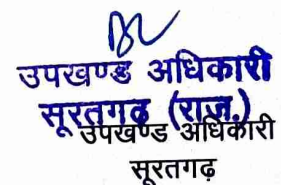 उपखण्ड अधिकारी
सूरतगढ़ (राज.)
उपखण्ड अधिकारी
सूरतगढ़